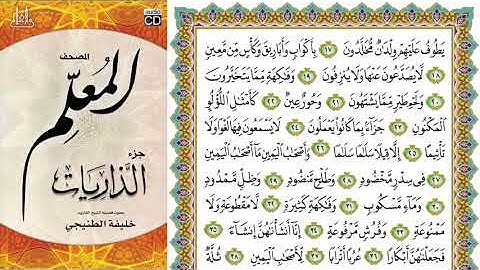 audio CD
المصحف
المعلم
جزء
الذاريات
بصوت فضيلة الشيخ القارئ
خليفة الطنيجي
يَطُوفُ عَلَيْهِمْ وِلْدَٰنٌ مُّخَلَّدُونَ ١٧ بِأَكْوَابٍ وَأَبَارِيقَ وَكَأْسٍ مِّن مَّعِينٍ
١٨ لَّا يُصَدَّعُونَ عَنْهَا وَلَا يُنزِفُونَ ١٩ وَفَٰكِهَةٍ مِّمَّا يَتَخَيَّرُونَ
٢٠ وَلَحْمِ طَيْرٍ مِّمَّا يَشْتَهُونَ ٢١ وَحُورٌ عِينٌ ٢٢ كَأَمْثَٰلِ ٱللُّؤْلُؤِ
ٱلْمَكْنُونِ ٢٣ جَزَآءًۢ بِمَا كَانُوا۟ يَعْمَلُونَ ٢٤ لَا يَسْمَعُونَ فِيهَا لَغْوًا وَلَا
تَأْثِيمًا ٢٥ إِلَّا قِيلًا سَلَٰمًا سَلَٰمًا ٢٦ وَأَصْحَٰبُ ٱلْيَمِينِ مَآ أَصْحَٰبُ ٱلْيَمِينِ
٢٧ فِى سِدْرٍ مَّخْضُودٍ ٢٨ وَطَلْحٍ مَّنضُودٍ ٢٩ وَظِلٍّ مَّمْدُودٍ
٣٠ وَمَآءٍ مَّسْكُوبٍ ٣١ وَفَٰكِهَةٍ كَثِيرَةٍ ٣٢ لَّا مَقْطُوعَةٍ وَلَا
مَمْنُوعَةٍ ٣٣ وَفُرُشٍ مَّرْفُوعَةٍ ٣٤ إِنَّآ أَنشَأْنَٰهُنَّ إِنشَآءً ٣٥
فَجَعَلْنَٰهُنَّ أَبْكَارًا ٣٦ عُرُبًا أَتْرَابًا ٣٧ لِّأَصْحَٰبِ ٱلْيَمِينِ ٣٨ ثُلَّةٌ